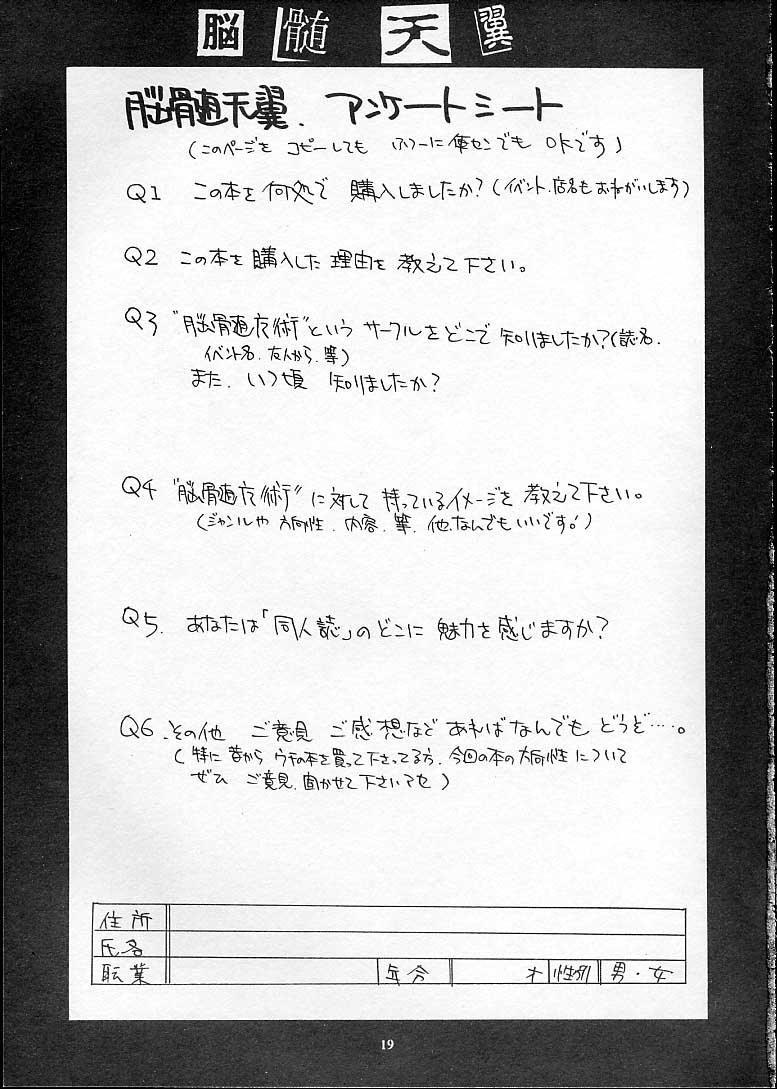 脳髄天翼
脳髄天翼. アンケートシート
(このページを コピーしても ふつーに便センでも OKです)
Q1 この本を何処で 購入しましたか?(イベント.店名もおねがいします)
Q2 この本を購入した理由を 教えて下さい。
Q3 "脳髄魔術"という サークルをどこで 知りましたか?(誌名.
イベント名.友人から.等)
また. いつ頃 知りましたか?
Q4 "脳髄魔術"に対して 持っているイメージを 教えて下さい。
(ジャンルや 方向性. 内容. 等. 他.なんでもいいです!)
Q5. あなたは「同人誌」のどこに 魅力を感じますか?
Q6.その他 ご意見 ご感想など あればなんでも どうぞ…。
(特に 昔から ウチの本を買って下さってる方. 今回の本の方向性について
ぜひ ご意見.聞かせて下さいませ)
住所
氏名
職業 年令 才 性別 男・女
19